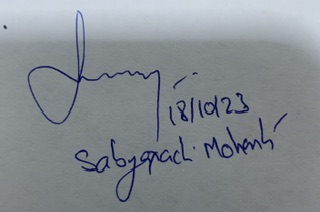 18/10/23
Sabyasachi Mohanty